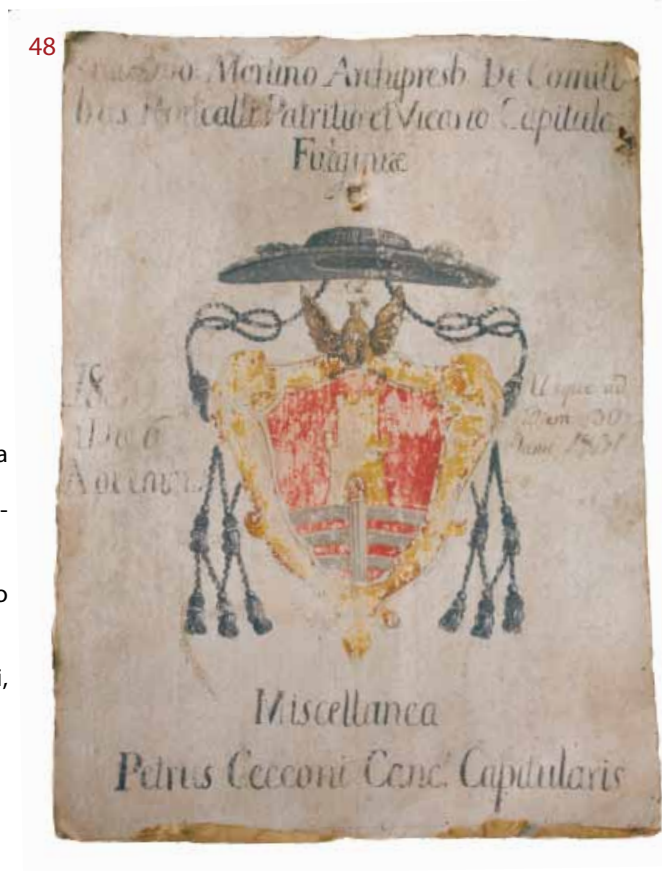 48
Merlino Archipresb De Comiti
bus Patritio et Vicario Capitula
Fulginiæ
18
Die 6
Usque ad
Diem 30
Junii 1831
a
-
o
i,
Miscellanea
Petrus Cecconi Canc. Capitularis